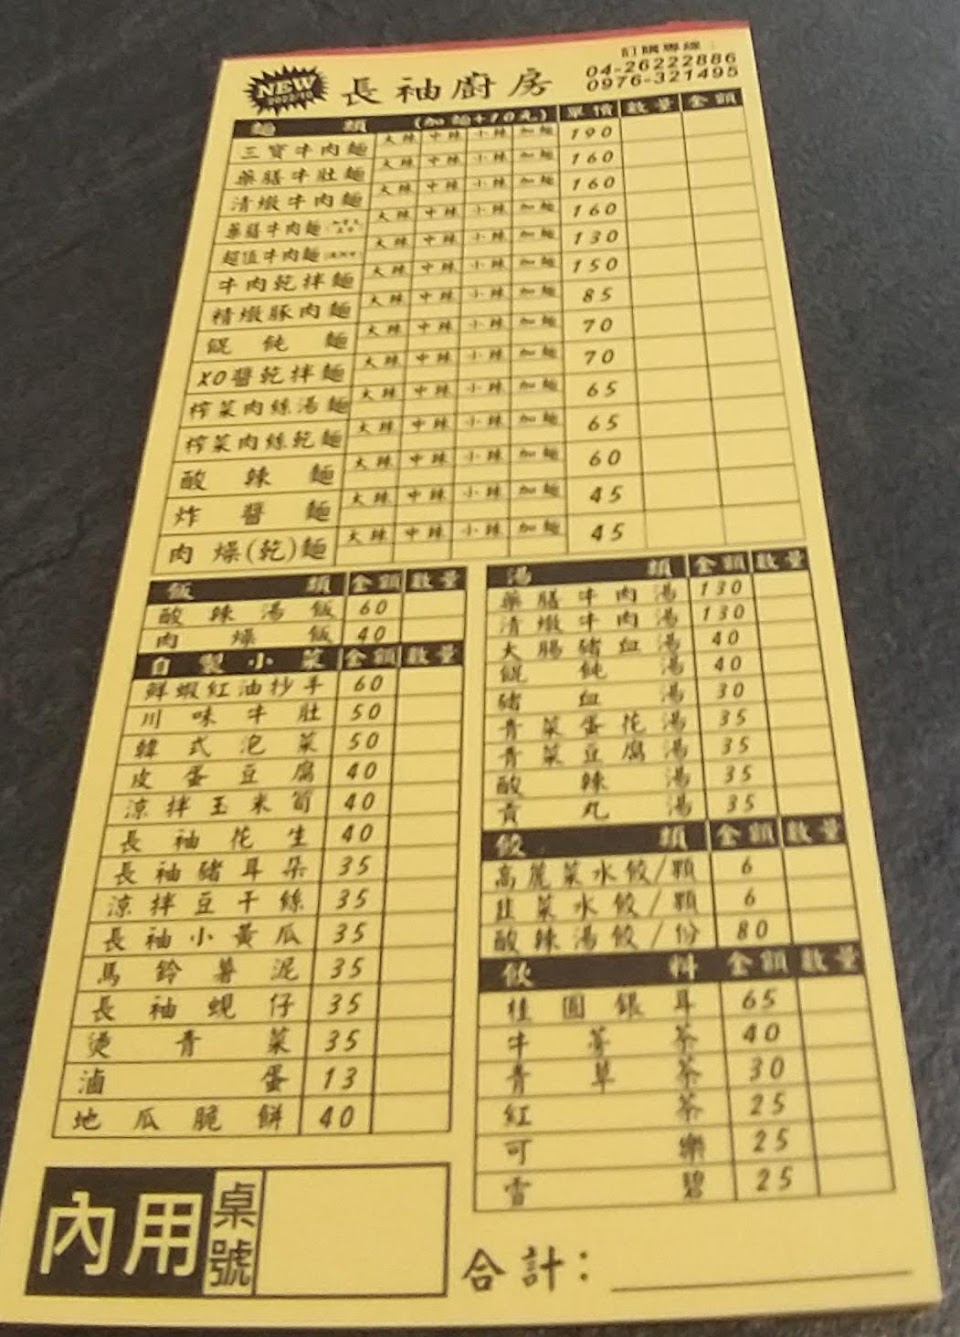 NEW
長袖廚房
訂購專線:
04-26222886
0976-321495
麵類 (加麵+10元) 單價 數量 金額
三寶牛肉麵 大辣 中辣 小辣 加麵 190
藥膳牛肚麵 大辣 中辣 小辣 加麵 160
清燉牛肉麵 大辣 中辣 小辣 加麵 160
藥膳牛肉麵 大辣 中辣 小辣 加麵 160
超值牛肉麵 大辣 中辣 小辣 加麵 130
牛肉乾拌麵 大辣 中辣 小辣 加麵 150
精燉豚肉麵 大辣 中辣 小辣 加麵 85
餛飩麵 大辣 中辣 小辣 加麵 70
XO醬乾拌麵 大辣 中辣 小辣 加麵 70
榨菜肉絲湯麵 大辣 中辣 小辣 加麵 65
榨菜肉絲乾麵 大辣 中辣 小辣 加麵 65
酸辣麵 大辣 中辣 小辣 加麵 60
炸醬麵 大辣 中辣 小辣 加麵 45
肉燥(乾)麵 大辣 中辣 小辣 加麵 45
飯類 金額 數量
酸辣湯飯 60
肉燥飯 40
自製小菜 金額 數量
鮮蝦紅油抄手 60
川味牛肚 50
韓式泡菜 50
皮蛋豆腐 40
涼拌玉米筍 40
長袖花生 40
長袖豬耳朵 35
涼拌豆干絲 35
長袖小黃瓜 35
馬鈴薯泥 35
長袖蜆仔 35
燙青菜 35
滷蛋 13
地瓜脆餅 40
湯類 金額 數量
藥膳牛肉湯 130
清燉牛肉湯 130
大腸豬血湯 40
餛飩湯 40
豬血湯 30
青菜蛋花湯 35
青菜豆腐湯 35
酸辣湯 35
貢丸湯 35
餃類 金額 數量
高麗菜水餃/顆 6
韭菜水餃/顆 6
酸辣湯餃/份 80
飲料 金額 數量
桂圓銀耳 65
牛蒡茶 40
青草茶 30
紅茶 25
可樂 25
雪碧 25
內用 桌號
合計: